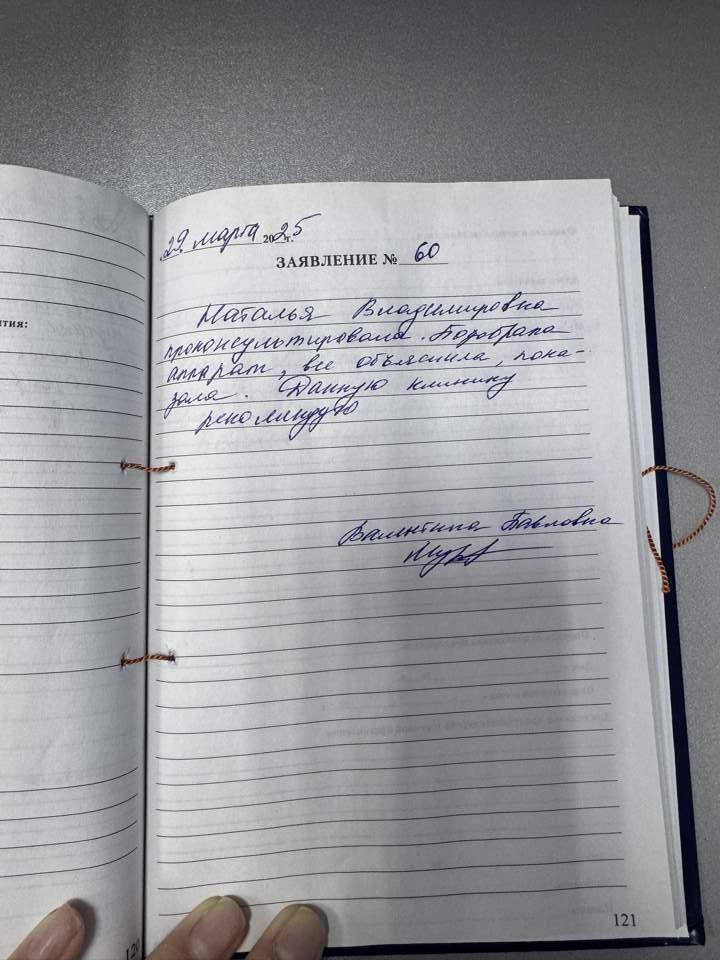 29 марта 2025 г.
ЗАЯВЛЕНИЕ № 60
Наталья Владимировна
проконсультировала. Подобрала
аппарат, все объяснила, пока-
зала. Данную клинику
рекомендую
Валентина Павловна
тия:
120
121